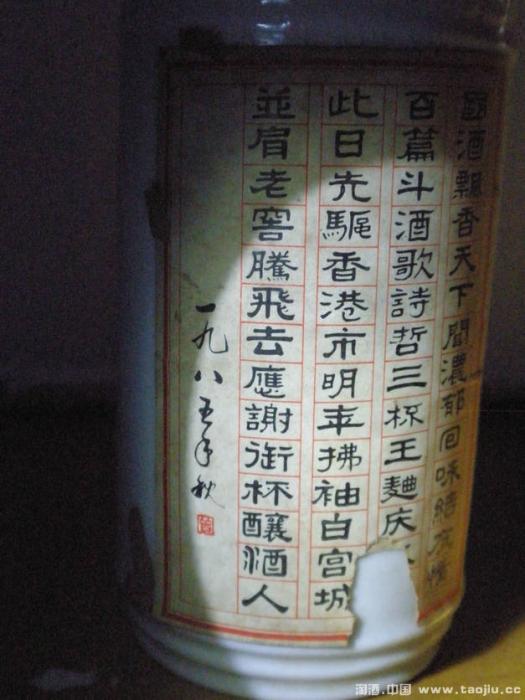 國酒飄香天下聞濃郁回味結情
百篇斗酒歌詩哲三杯王麯庆
此日先驅香港市明年拂袖白宫城
並肩老窖騰飛去應謝衔杯釀酒人
一九八五年秋
淘酒.中国 www.taojiu.cc